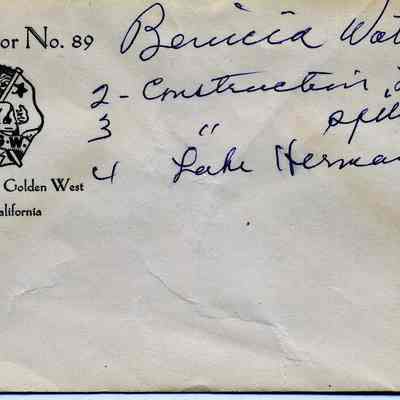 or No. 89
Benicia Wat
2 - Construction
3 " spil
4 Lake Herman
Golden West
alifornia